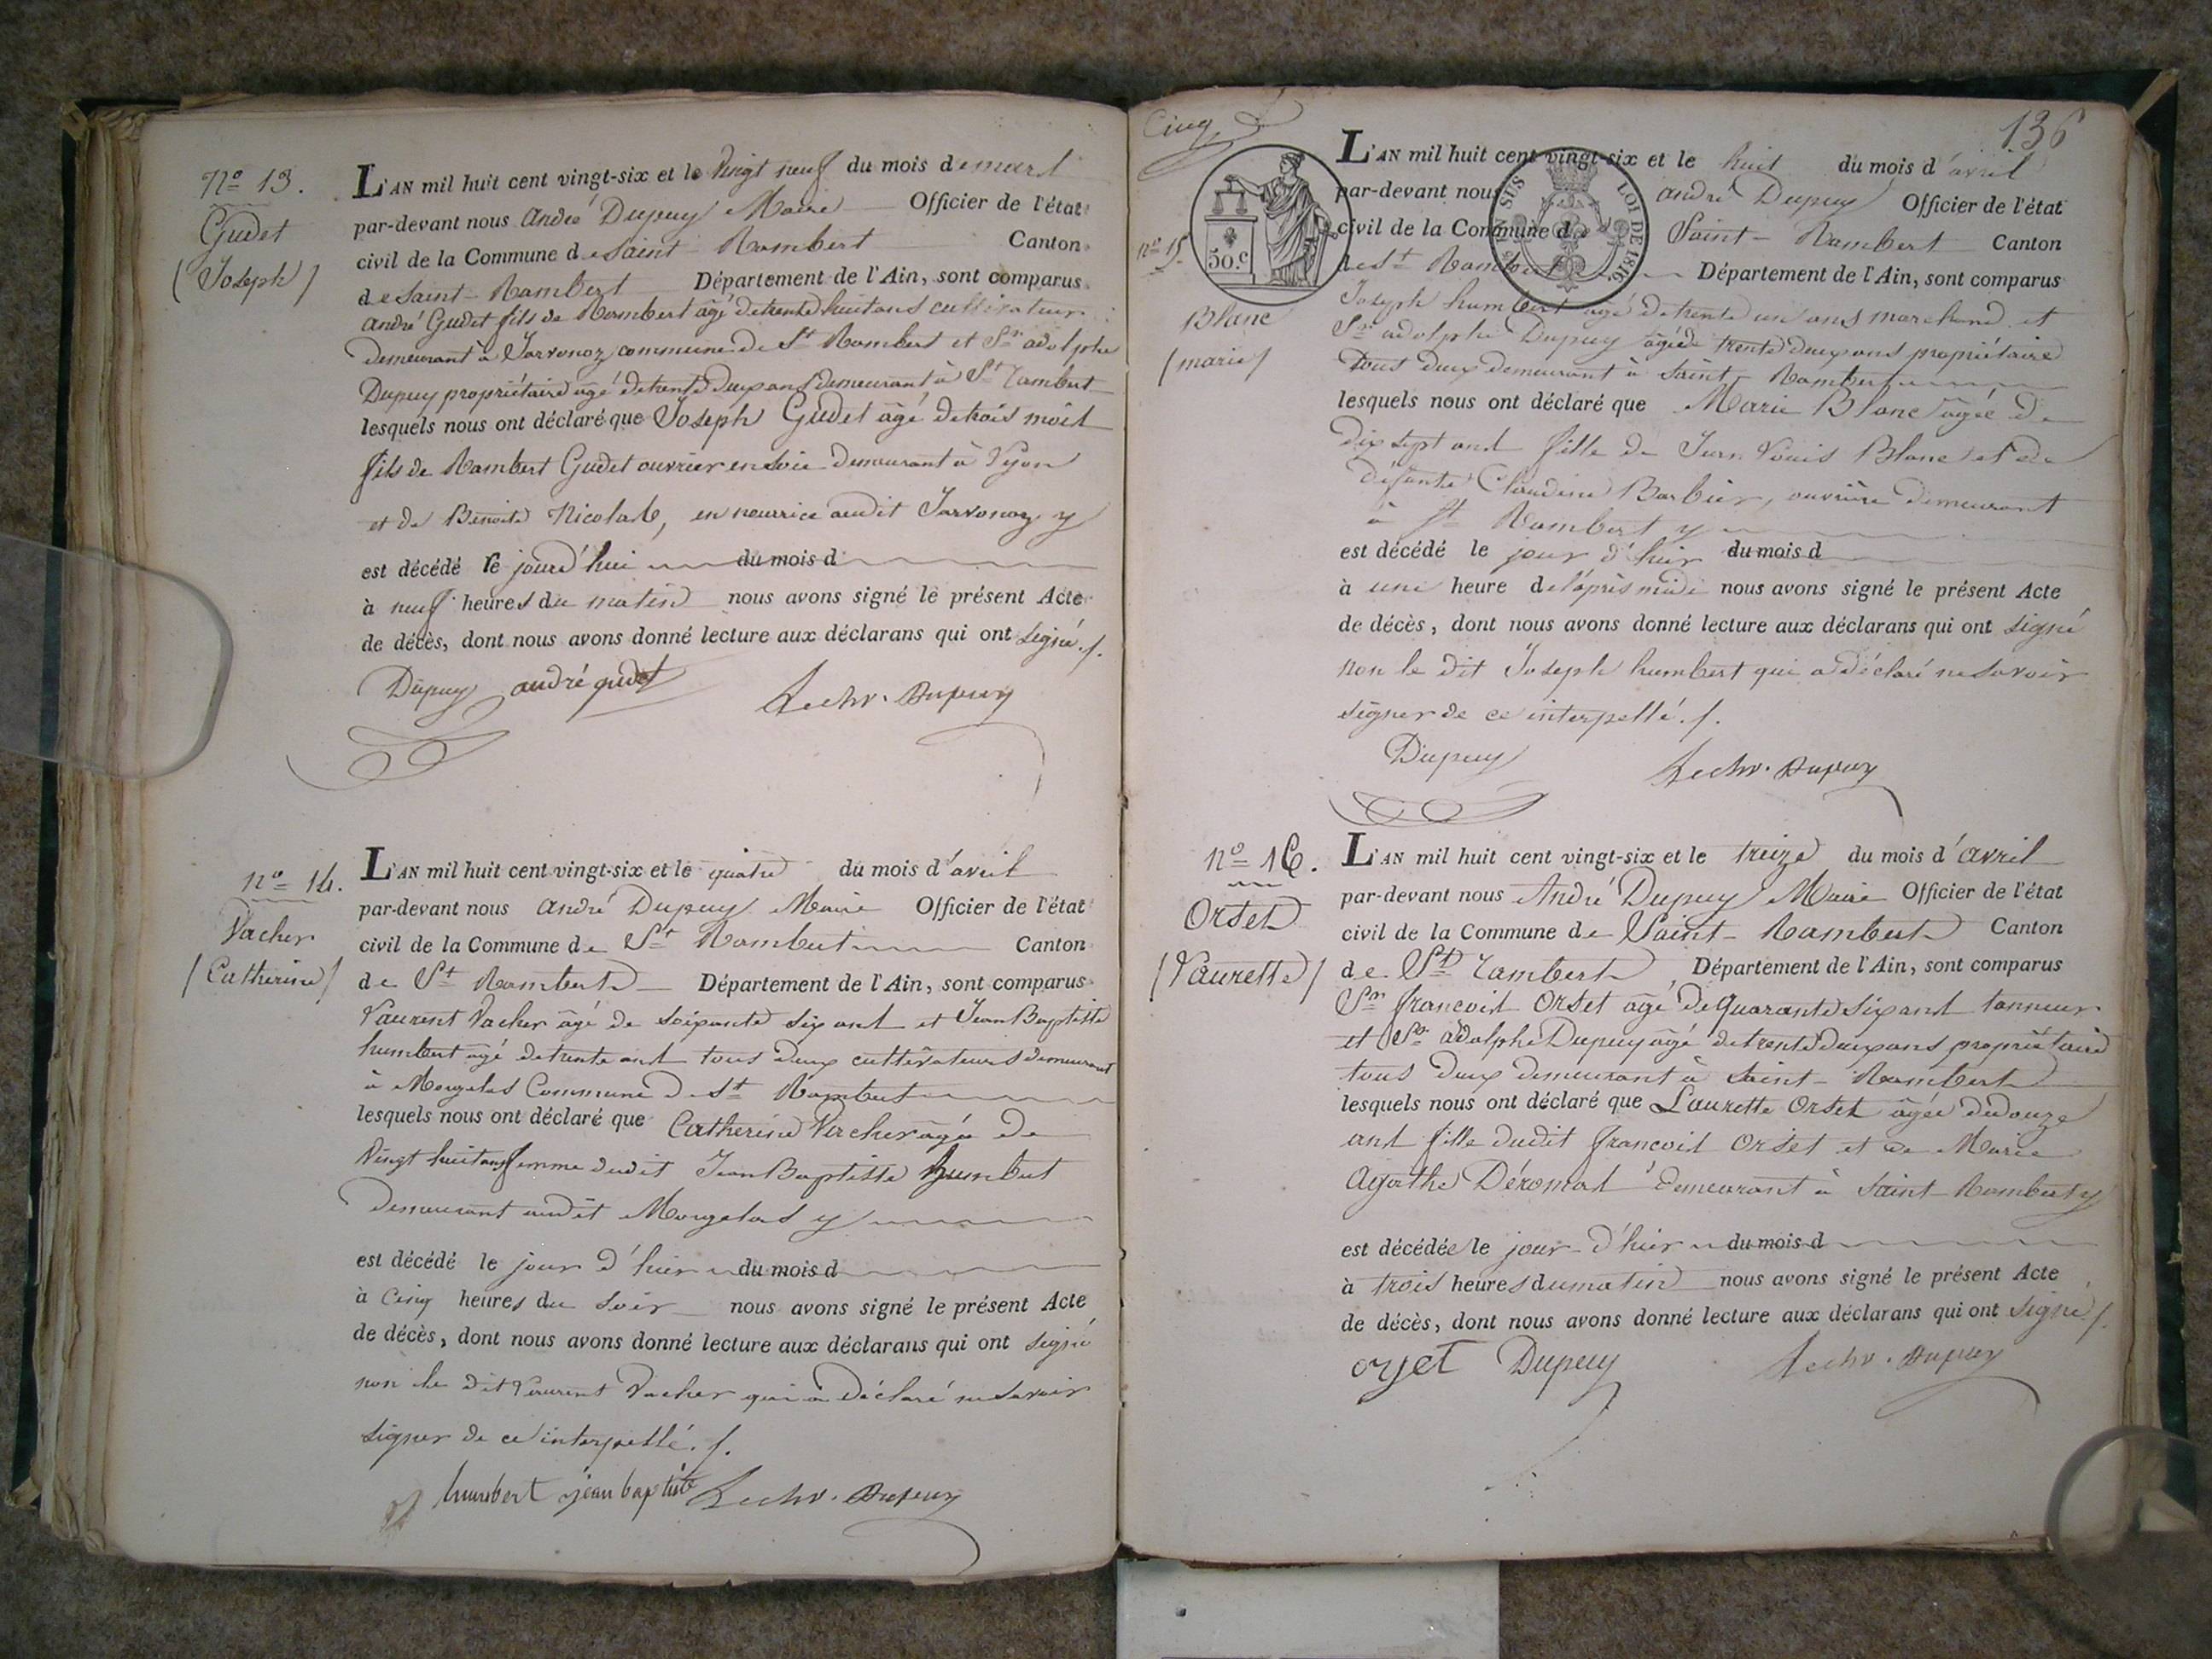 nº 13.
Gudet
(Joseph)
L'AN mil huit cent vingt-six et le vingt neuf du mois de mars
par-devant nous André Dupuy Maire Officier de l'état
civil de la Commune de Saint Rambert Canton
de Saint-Rambert Département de l'Ain, sont comparus
André Gudet fils de Rambert âgé de trente huit ans cultivateur
demeurant à Javornoz commune de St Rambert et Sr adolphe
Dupuy propriétaire âgé de trente deux ans demeurant à St rambert
lesquels nous ont déclaré que Joseph Gudet âgé de trois mois
fils de Rambert Gudet ouvrier en soie demeurant à Lyon
et de Benoite Nicolas, en nourrice audit Javornoz y
est décédé le jourd'hui du mois d
à neuf heures du matin nous avons signé le présent Acte
de décès, dont nous avons donné lecture aux déclarans qui ont signé./.
Dupuy andré gudet Dupuy
nº 14.
Vacher
(Catherine)
L'AN mil huit cent vingt-six et le quatre du mois d'avril
par-devant nous André Dupuy Maire Officier de l'état
civil de la Commune de St Rambert Canton
de St Rambert Département de l'Ain, sont comparus
Laurent Vacher âgé de soixante six ans et Jean Baptiste
humbert âgé de trente ans tous deux cultivateurs demeurant
à Commune de St Rambert
lesquels nous ont déclaré que Catherine Vacher âgée de
vingt huit ans femme dudit Jean Baptiste humbert
demeurant audit y
est décédé le jour d'hier du mois d
à cinq heures du soir nous avons signé le présent Acte
de décès, dont nous avons donné lecture aux déclarans qui ont signé
non le dit Laurent Vacher qui a déclaré ne savoir
signer de ce interpellé./.
humbert jean baptiste Dupuy
Cinq
136
50.c
EN SUS LOI DE 1816.
nº 15.
Blanc
(marie)
L'AN mil huit cent vingt-six et le huit du mois d'avril
par-devant nous andré Dupuy Officier de l'état
civil de la Commune de Saint-Rambert Canton
de St Rambert Département de l'Ain, sont comparus
Joseph humbert âgé de trente un ans marchand et
Sr adolphe Dupuy âgé de trente deux ans propriétaire
tous deux demeurant à Saint Rambert
lesquels nous ont déclaré que Marie Blanc âgée de
dix sept ans fille de Jean Louis Blanc et de
défunte Claudine Barbier, ouvrière demeurant
à St Rambert y
est décédé le jour d'hier du mois d
à une heure de l'après midi nous avons signé le présent Acte
de décès, dont nous avons donné lecture aux déclarans qui ont signé
non le dit Joseph humbert qui a déclaré ne savoir
signer de ce interpellé./.
Dupuy Dupuy
nº 16.
Orset
(Laurette)
L'AN mil huit cent vingt-six et le treize du mois d'avril
par-devant nous André Dupuy Maire Officier de l'état
civil de la Commune de Saint-Rambert Canton
de St rambert Département de l'Ain, sont comparus
Sr francois Orset âgé de quarante six ans tanneur
et Sr adolphe Dupuy âgé de trente deux ans propriétaire
tous deux demeurant à Saint-Rambert
lesquels nous ont déclaré que Laurette Orset âgée de douze
ans fille dudit francois Orset et de Marie
Agathe demeurant à Saint-Rambert y
est décédée le jour d'hier du mois d
à trois heures du matin nous avons signé le présent Acte
de décès, dont nous avons donné lecture aux déclarans qui ont signé/.
orset Dupuy Dupuy